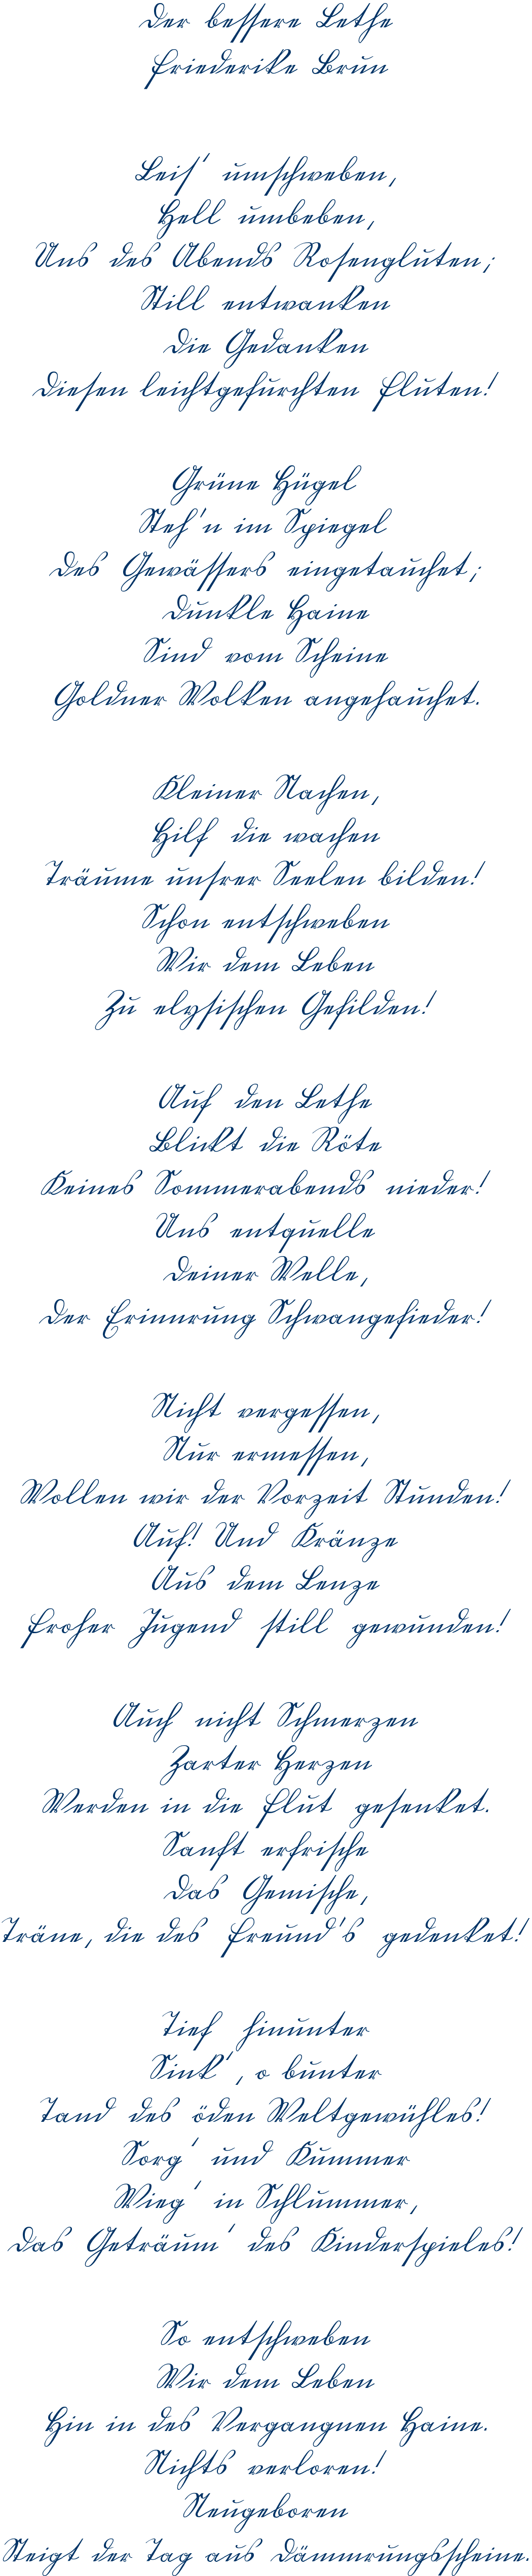 Der bessere Lethe
Friederike Brun
Leis' umschweben,
Hell umbeben,
Uns des Abends Rosengluten;
Still entwanken
Die Gedanken
Diesen leichtgefurchten Fluten!
Grüne Hügel
Steh'n im Spiegel
Des Gewässers eingetauchet;
Dunkle Haine
Sind vom Scheine
Goldner Wolken angehauchet.
Kleiner Nachen,
Hilf die wachen
Träume unsrer Seelen bilden!
Schon entschweben
Wir dem Leben
Zu elysischen Gefilden!
Auf den Lethe
Blickt die Röte
Keines Sommerabends nieder!
Uns entquelle
Deiner Welle,
Der Erinnrung Schwangefieder!
Nicht vergessen,
Nur ermessen,
Wollen wir der Vorzeit Stunden!
Auf! Und Kränze
Aus dem Lenze
Froher Jugend still gewunden!
Auch nicht Schmerzen
Zarter Herzen
Werden in die Flut gesenket.
Sanft erfrische
Das Gemische,
Träne, die des Freund's gedenket!
Tief hinunter
Sink', o bunter
Tand des öden Weltgewühles!
Sorg' und Kummer
Wieg' in Schlummer,
Das Geträum' des Kinderspieles!
So entschweben
Wir dem Leben
Hin in des Vergangnen Haine.
Nichts verloren!
Neugeboren
Steigt der Tag aus Dämmrungsscheine.